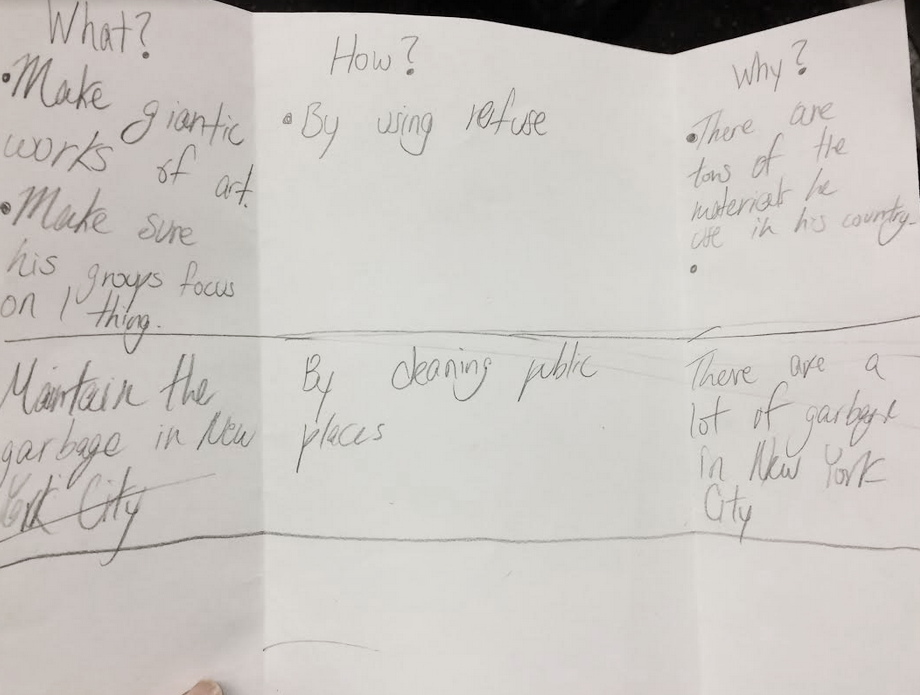 What?
• Make
giantic
works of art.
• Make sure
his groups focus
on 1 thing.
How?
• By using refuse
Why?
• There are
tons of the
materials he
use in his country.
•
Maintain the
garbage in New
York City
By cleaning public
places
There are a
lot of garbage
in New York
City